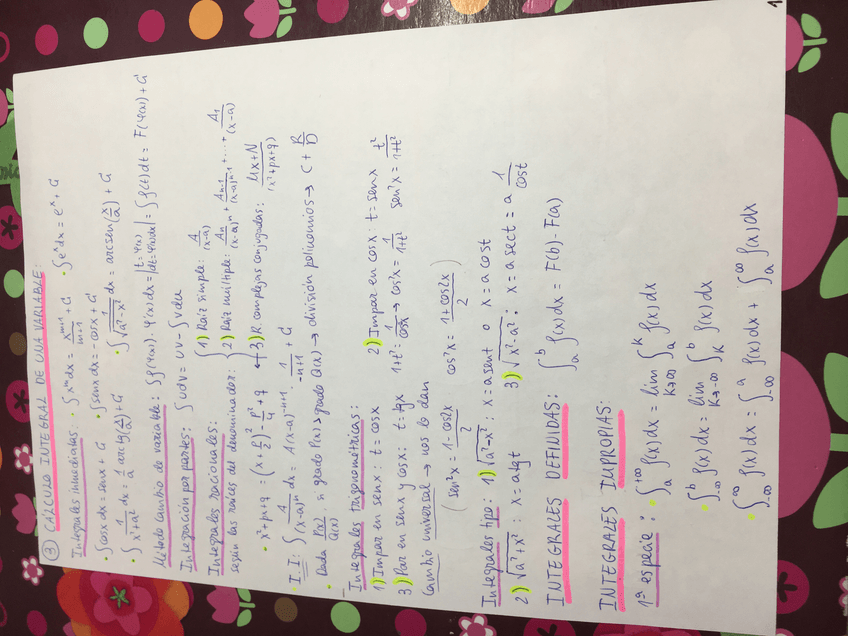 ③ CÁLCULO INTEGRAL DE UNA VARIABLE:
Integrales inmediatas: · ∫xᵐdx = xᵐ⁺¹/(m+1) + C · ∫eˣdx = eˣ + C
· ∫cosx dx = senx + C · ∫senx dx = -cosx + C
· ∫ 1/(x²+a²) dx = 1/a arctg(x/a) + C · ∫ 1/√(a²-x²) dx = arcsen(x/a) + C
Método cambio de variable: ∫f(φ(x))·φ'(x)dx = |t=φ(x) dt=φ'(x)dx| = ∫f(t)dt = F(φ(x)) + C
Integración por partes: ∫udv = uv - ∫vdu
Integrales racionales: 1) Raíz simple: A/(x-a)
según las raíces del denominador: 2) Raíz múltiple: Aₙ/(x-a)ⁿ + Aₙ₋₁/(x-a)ⁿ⁻¹ + ... + A₁/(x-a)
· x²+px+q = (x + p/2)² - p²/4 + q ← 3) R. complejas conjugadas: Mx+N/(x²+px+q)
· I.I: ∫ 1/(x-a)ⁿ dx = A(x-a)⁻ⁿ⁺¹ · 1/(-n+1) + C
· Dada P(x)/Q(x), si grado P(x) > grado Q(x) → división polinomios → C + R/D
Integrales trigonométricas:
1) Impar en senx: t = cosx 2) Impar en cosx: t = senx
3) Par en senx y cosx: t = tgx 1+t² = 1/cos²x → cos²x = 1/(1+t²) sen²x = t²/(1+t²)
Cambio universal → nos lo dan
(sen²x = (1-cos2x)/2 cos²x = (1+cos2x)/2)
Integrales tipo: 1) √(a²-x²): x = a sent o x = a cost
2) √(a²+x²): x = atgt 3) √(x²-a²): x = a sect = a 1/cost
INTEGRALES DEFINIDAS: ∫ₐᵇ f(x)dx = F(b)-F(a)
INTEGRALES IMPROPIAS:
1ª especie: · ∫ₐ^(+∞) f(x)dx = lim k→∞ ∫ₐᵏ f(x)dx
· ∫₋∞ᵇ f(x)dx = lim k→-∞ ∫ₖᵇ f(x)dx
· ∫₋∞^∞ f(x)dx = ∫₋∞ᵃ f(x)dx + ∫ₐ^∞ f(x)dx
1